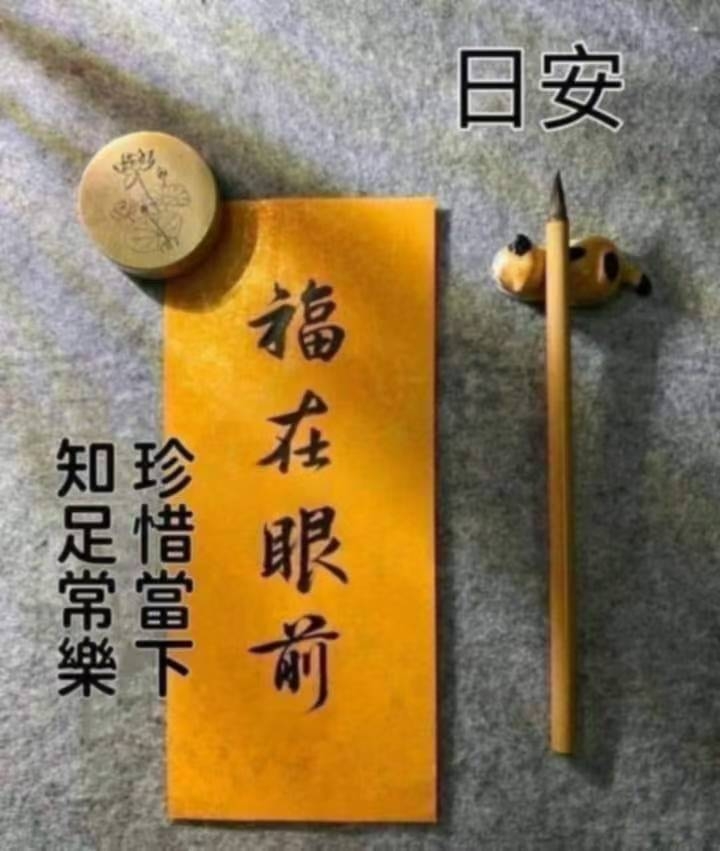 日安
福在眼前
珍惜當下
知足常樂